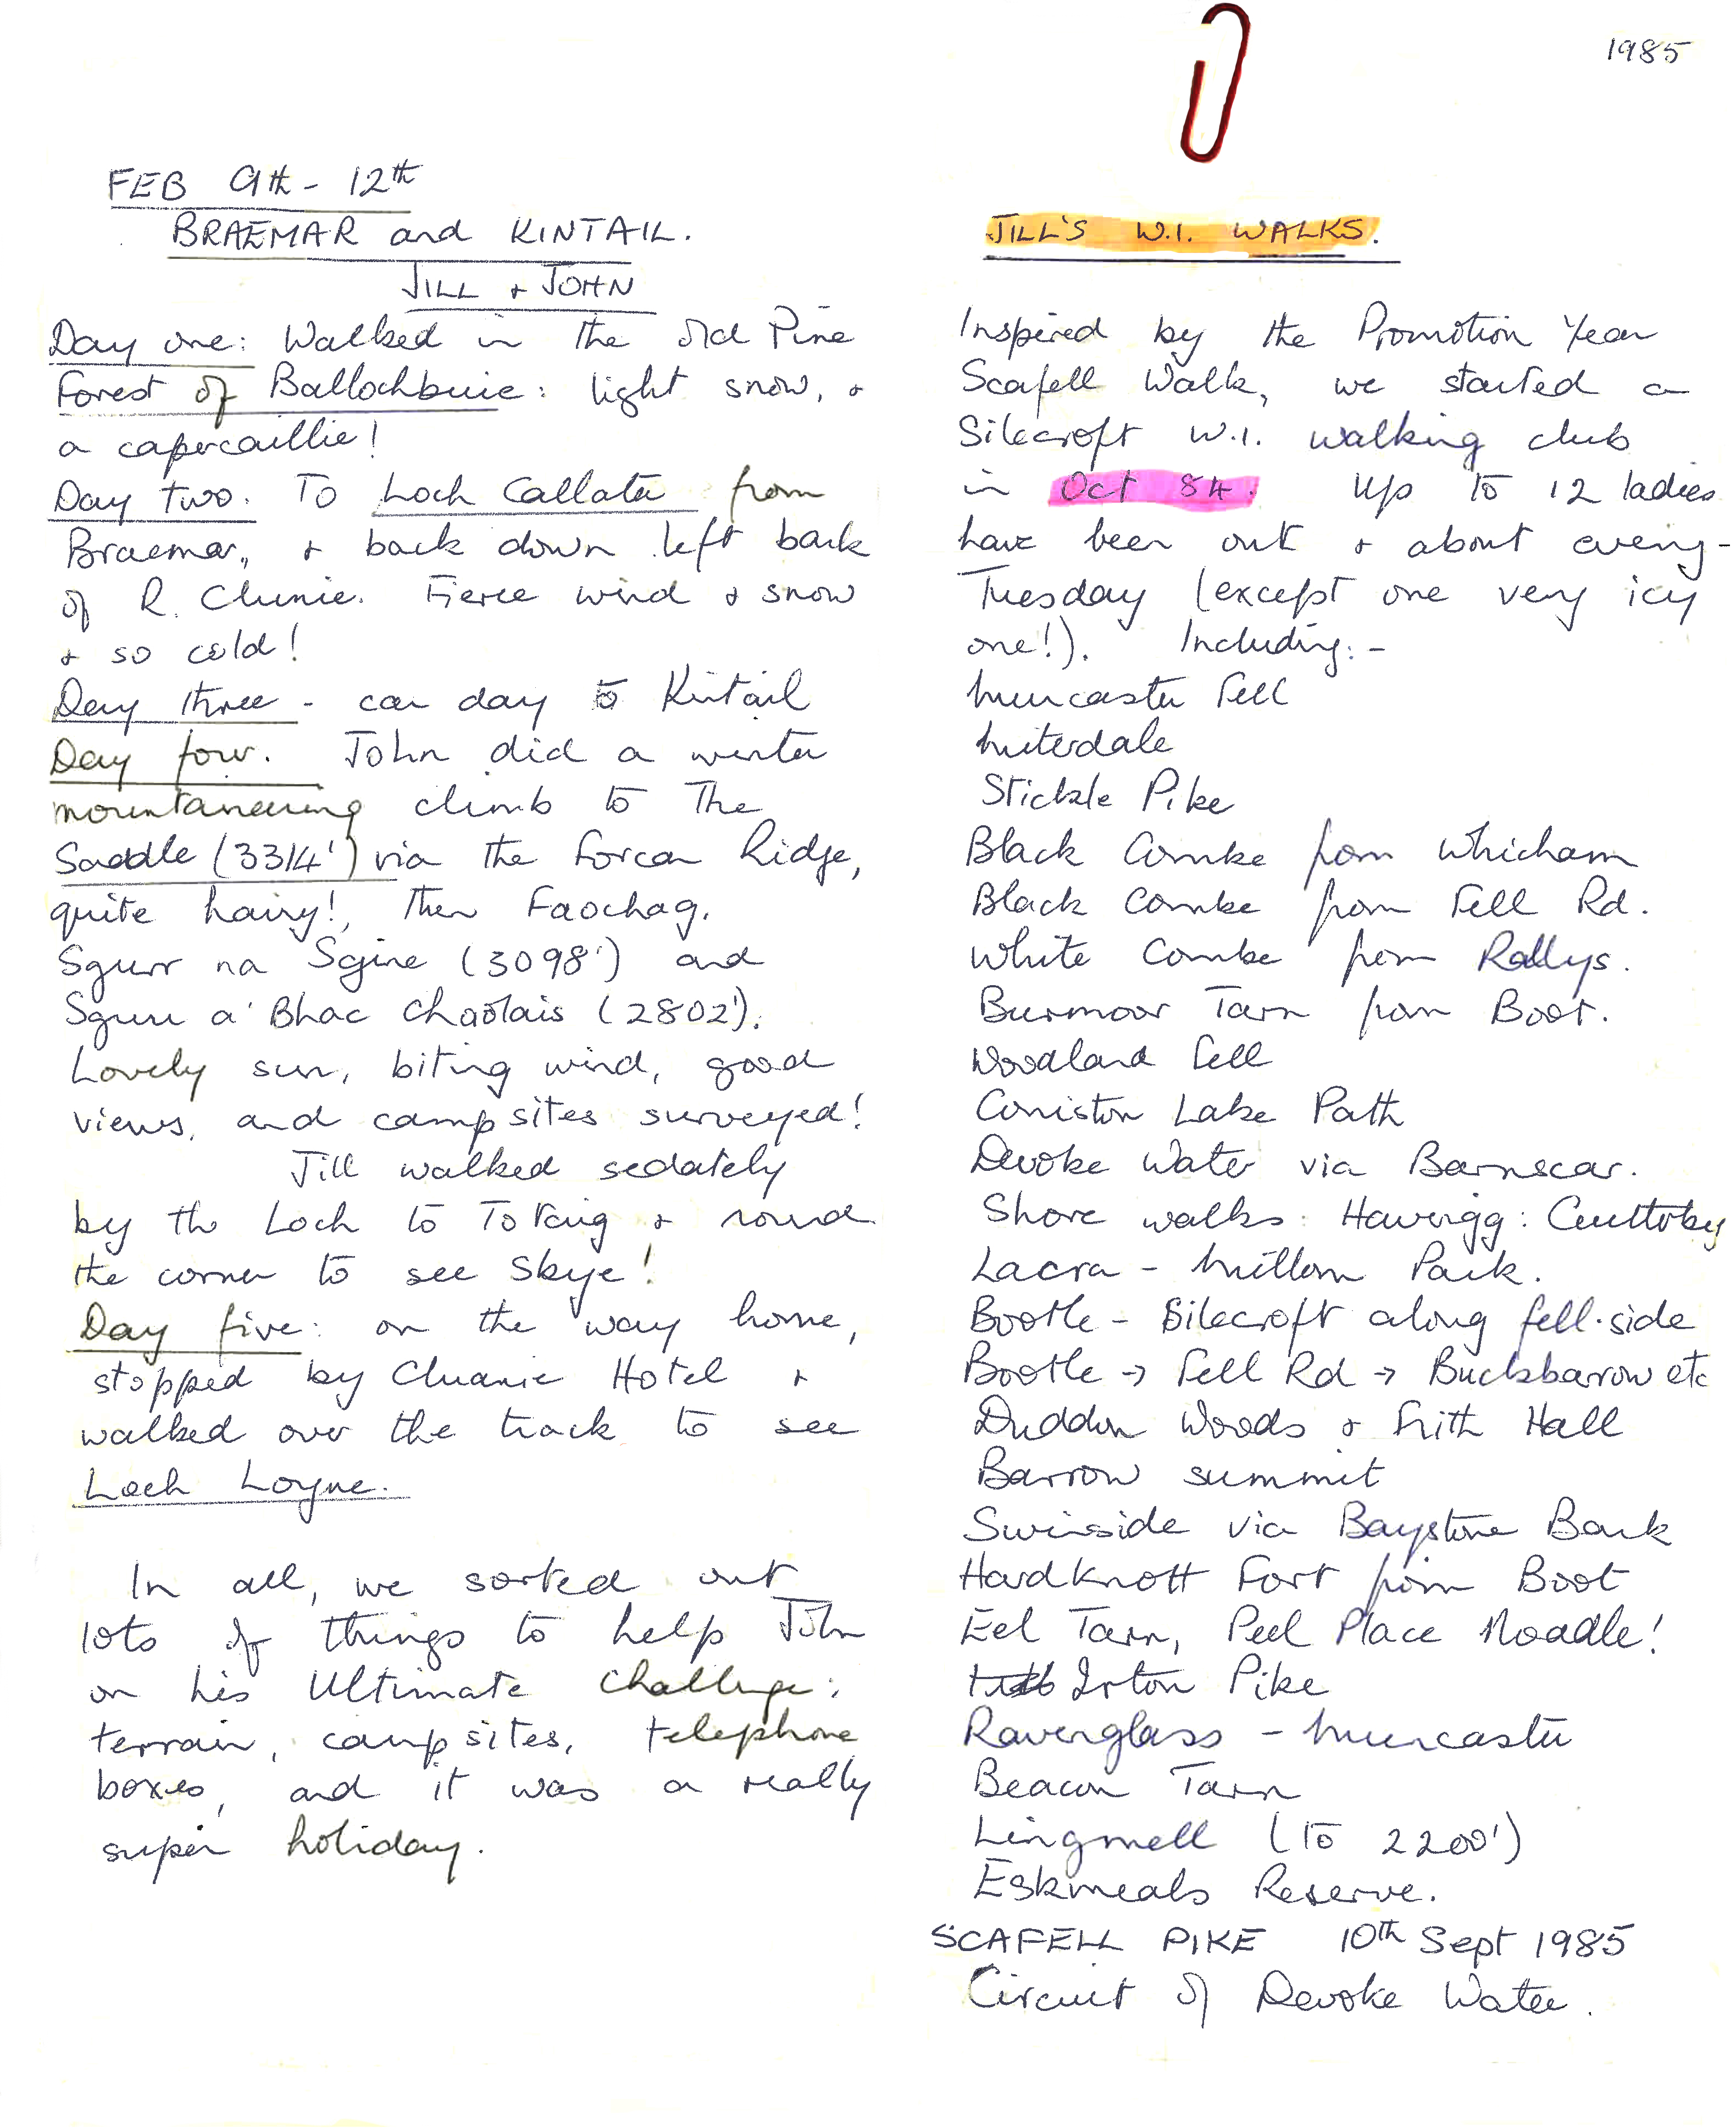 1985
FEB 9th - 12th
BRAEMAR and KINTAIL.
JILL + JOHN
Day one: Walked in the old Pine
Forest of Ballochbuie: light snow, +
a capercaillie!
Day two. To Loch Callater from
Braemar, + back down left bank
of R. Clunie. Fierce wind + snow
+ so cold!
Day three - car day to Kintail
Day four. John did a winter
mountaineering climb to The
Saddle (3314') via the Forcan Ridge,
quite hairy!, then Faochag,
Sgurr na Sgine (3098') and
Sgurr a' Bhac Chaolais (2802').
Lovely sun, biting wind, good
views, and camp sites surveyed!
Jill walked sedately
by the Loch to Totaig + round
the corner to see Skye!
Day five: on the way home,
stopped by Cluanie Hotel +
walked over the track to see
Loch Loyne.
In all, we sorted out
lots of things to help John
on his Ultimate Challenge:
terrain, camp sites, telephone
boxes, and it was a really
super holiday.
JILL'S W.I. WALKS.
Inspired by the Promotion Year
Scafell Walk, we started a
Silecroft W.I. walking club
in Oct 84. Up to 12 ladies
have been out + about every-
Tuesday (except one very icy
one!). Including:-
Muncaster Fell
Miterdale
Stickle Pike
Black Combe from Whicham
Black Combe from Fell Rd.
White Combe from Rallys.
Burmoor Tarn from Boot.
Woodland Fell
Coniston Lake Path
Devoke Water via Barnscar.
Shore walks: Haverigg: Annaside
Lacra - Millom Park.
Bootle - Silecroft along fell-side
Bootle → Fell Rd → Buckbarrow etc
Duddon Woods + Frith Hall
Barrow summit
Swinside via Baystone Bank
Hardknott Fort from Boot
Eel Tarn, Peel Place Noddle!
Irton Pike
Ravenglass - Muncaster
Beacon Tarn
Lingmell (to 2200')
Eskmeals Reserve.
SCAFELL PIKE 10th Sept 1985
Circuit of Devoke Water.